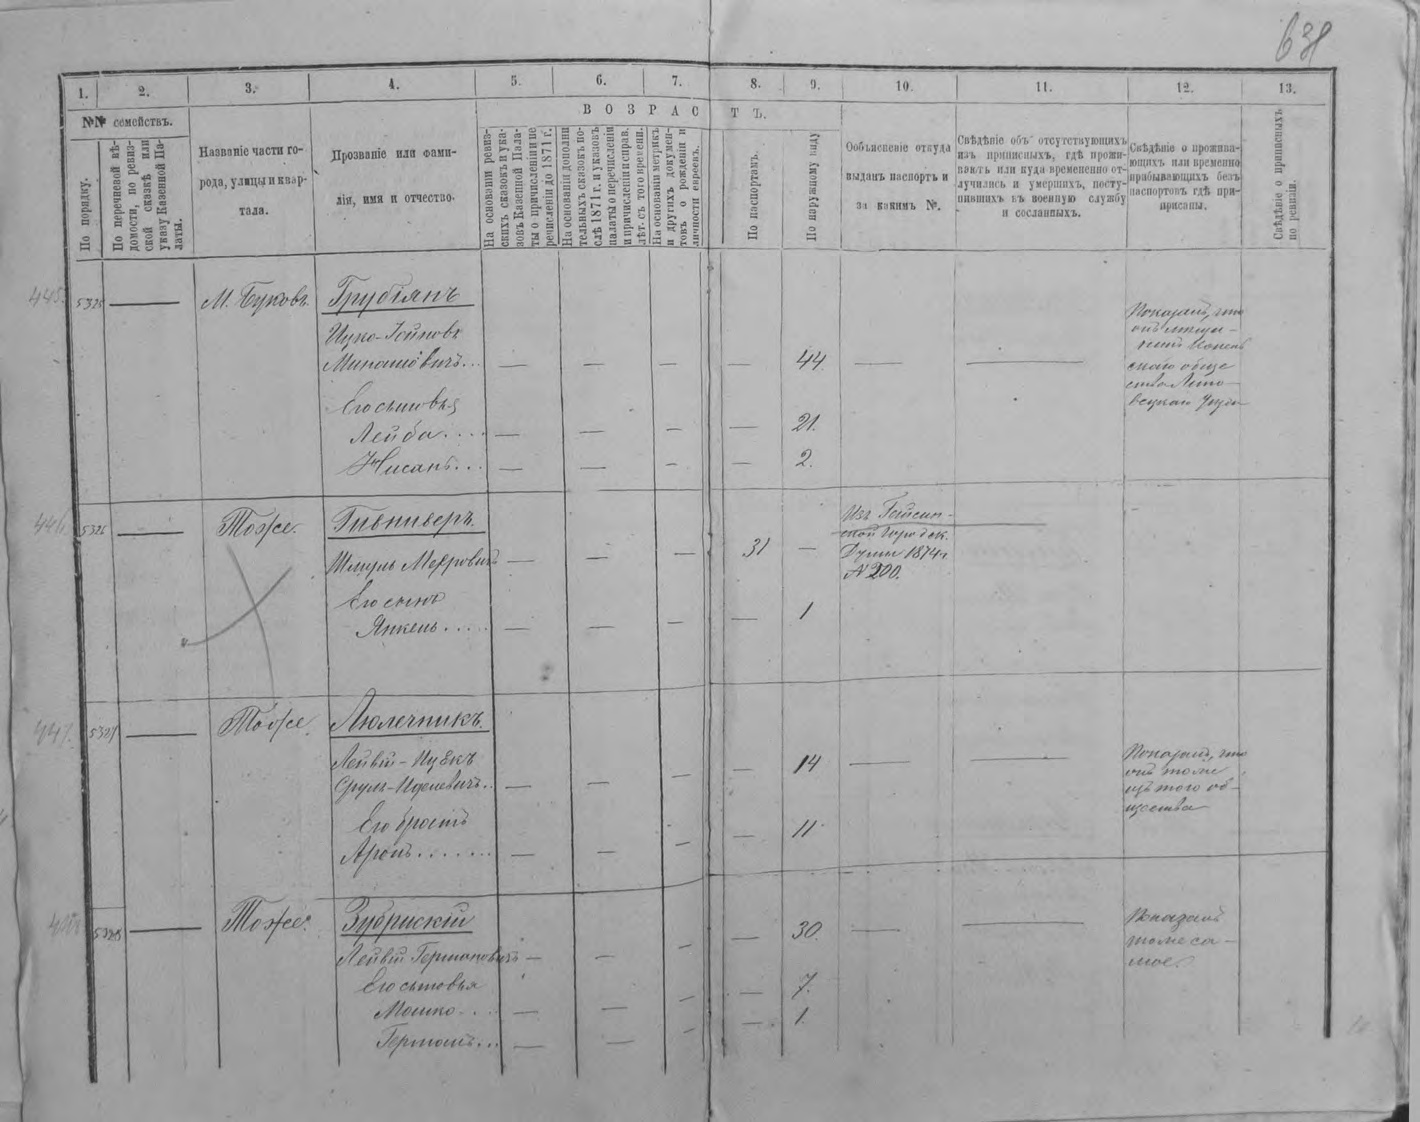 638
1. 2. 3. 4. 5. 6. 7. 8. 9. 10. 11. 12. 13.
№№ семействъ.
По порядку.
По перечневой вѣ-
домости, по ревиз-
ской сказкѣ или
указу Казенной Па-
латы.
Названіе части го-
рода, улицы и квар-
тала.
Прозваніе или фами-
лія, имя и отчество.
ВОЗРАСТЪ.
На основаніи ревиз-
скихъ сказокъ и ука-
зовъ Казенной Пала-
ты о причисленіи и пе
речисленіи до 1871 г.
На основаніи дополни
тельныхъ сказокъ по-
слѣ 1871 г. и указовъ
палаты о перечисленіи
и причисленіи и справ.
лѣт. съ того времени.
На основаніи метрикъ
и другихъ докумен-
товъ о рожденіи и
личности евреевъ.
По паспортамъ.
По наружному виду
Объясненіе откуда
выданъ паспортъ и
за какимъ №.
Свѣдѣніе объ отсутствующихъ
изъ приписныхъ, гдѣ прожи-
ваютъ или куда временно от-
лучились и умершихъ, посту-
пившихъ въ военную службу
и сосланныхъ.
Свѣдѣніе о прожива-
ющихъ или временно
прибывающихъ безъ
паспортовъ гдѣ при-
писаны.
Свѣдѣніе о приписныхъ
по ревизіи.
445. 5325 — М. Буковъ. Грубіянъ
Ицко-Іойновъ
Миношовичъ... — — — — 44 — — Показалъ, что
онъ мѣща-
нинъ
скаго обще
ства Лето-
вецкаго
Его сыновья
Лейба.... — — — — 21.
Нисанъ... — — — — 2.
446. 5326 — Тоже. Гивнисеръ.
Шмуль Меѣровичъ — — — 31 — Изъ Гайсин-
ской Городск.
Думы 1874 г.
№ 200.
Его сынъ
Янкель..... — — — — 1
447. 5327 — Тоже. Люлечникъ.
Лейвій-Ицекъ
Сруль-Иделевичъ.. — — — — 14 — — Показалъ, что
онъ тоже
изъ того об-
щества
Его братъ
Аронъ....... — — — — 11
448 5328 — Тоже. Зубрискій
Лейвій Германовичъ — — — — 30. — — Показалъ
тоже са-
мое.
Его сыновья
Мошко.... — — — — 7.
Германъ... — — — — 1.